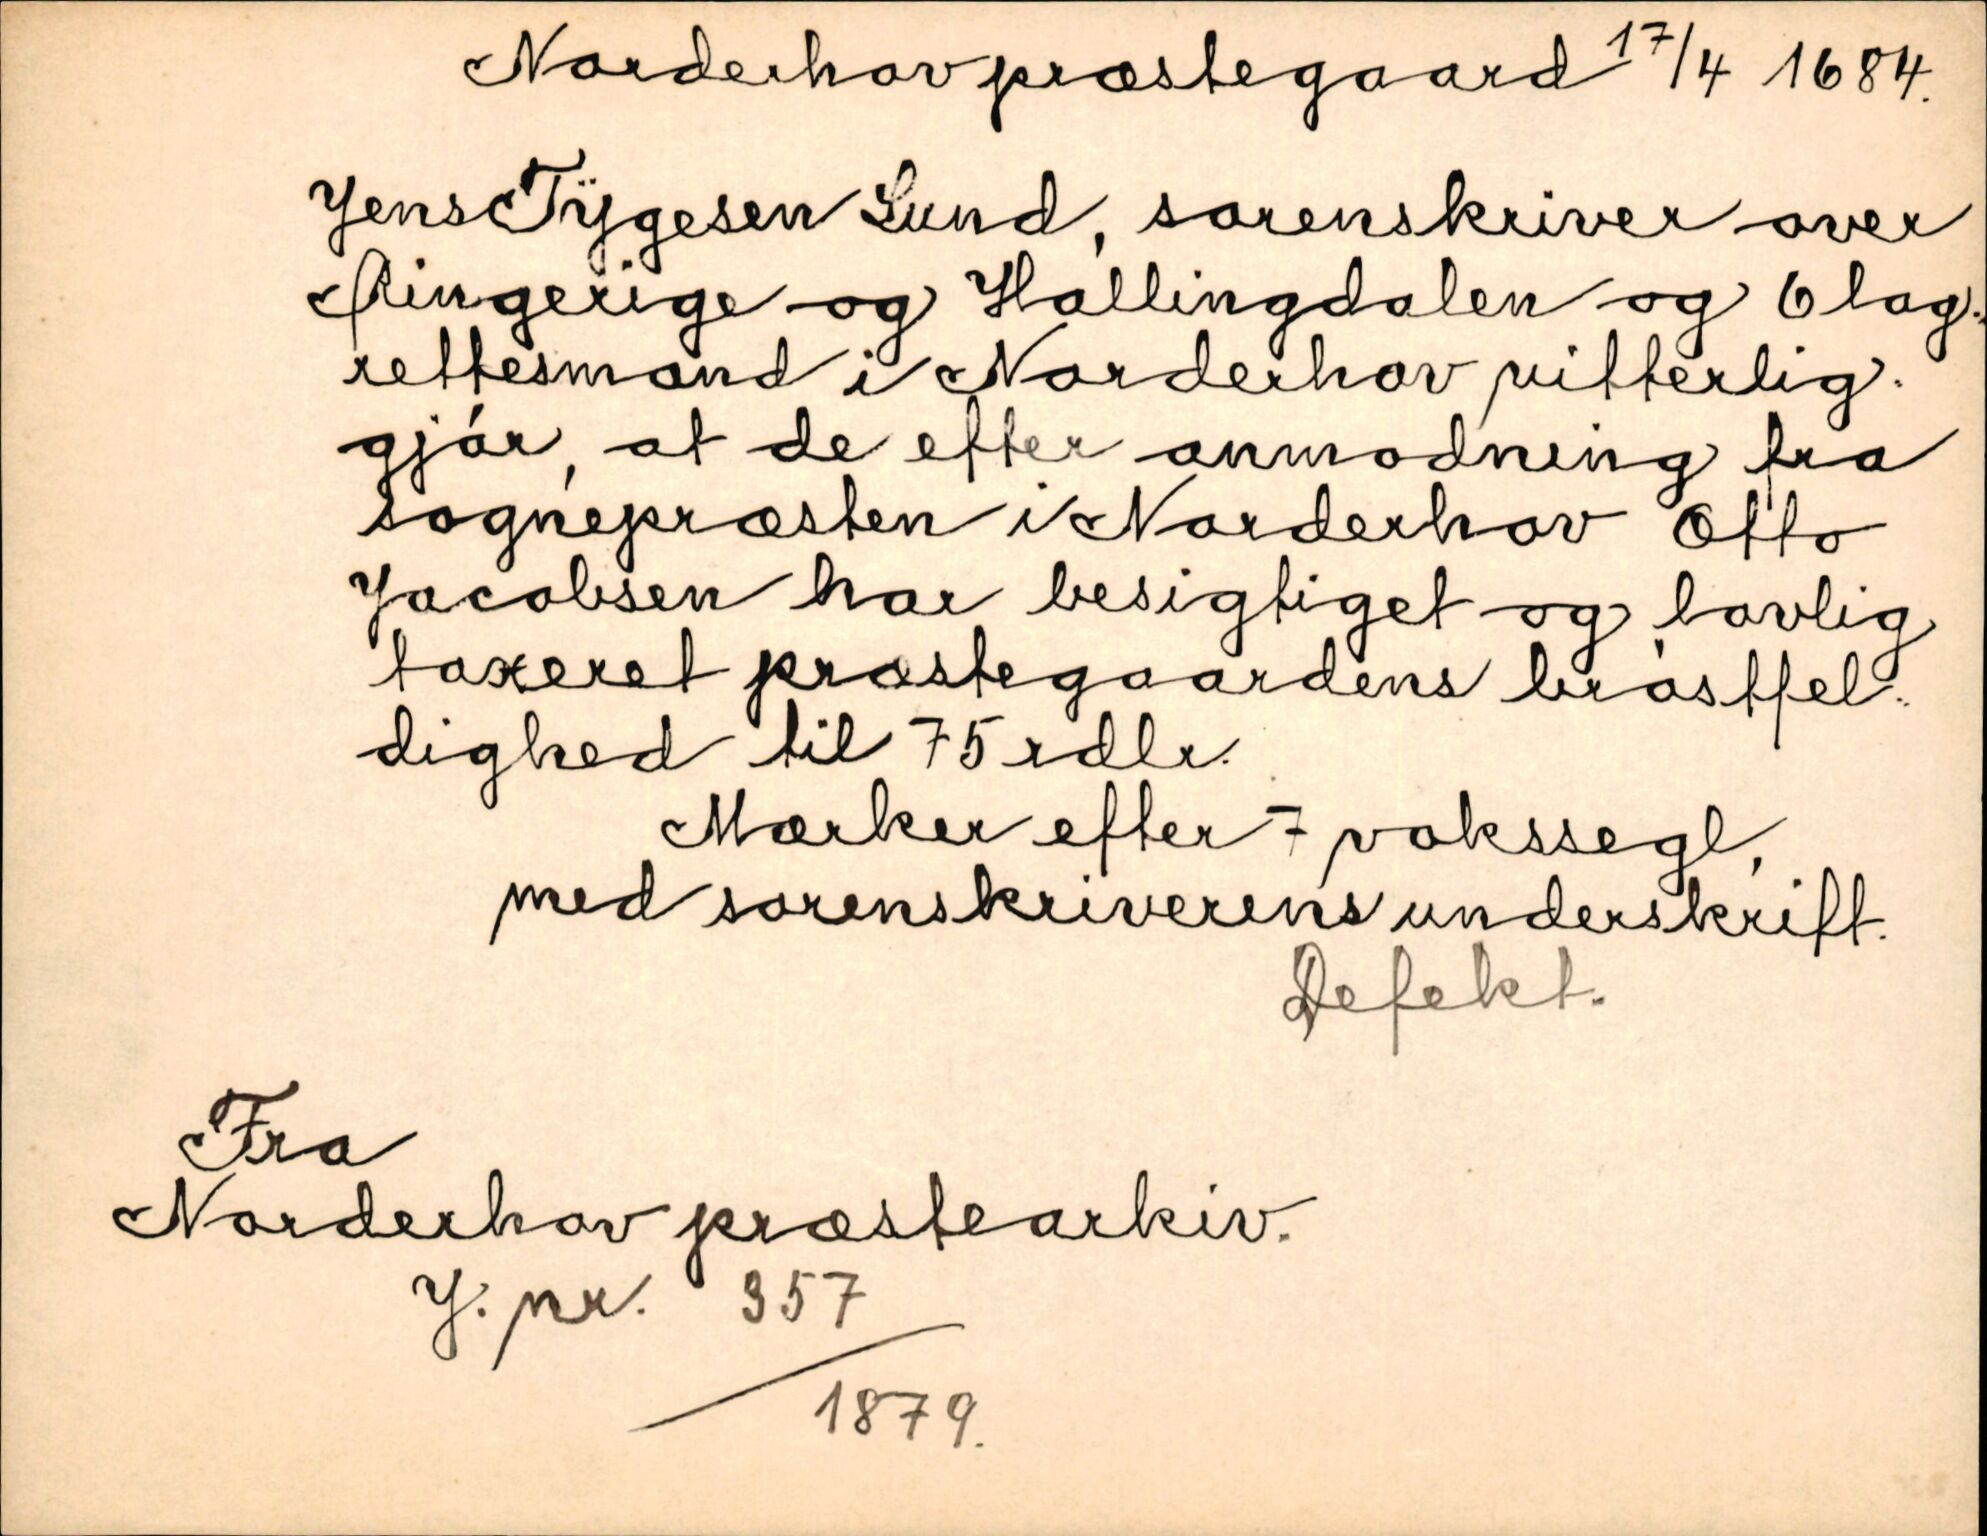 Norderhov præstegaard 17/4 1684.
Jens Tÿgesen Lund, sorenskriver over
Ringerige og Hallingdalen og 6 lag-
rettesmænd i Norderhov vitterlig-
gjør, at de efter anmodning fra
sognepræsten i Norderhov Otto
Jacobsen har besigtiget og lovlig
taxeret præstegaardens brøstfel-
dighed til 75 rdlr.
Mærker efter 7 vokssegl,
med sorenskriverens underskrift.
Defekt.
Fra
Norderhov præstearkiv.
J. nr. 357
1879.